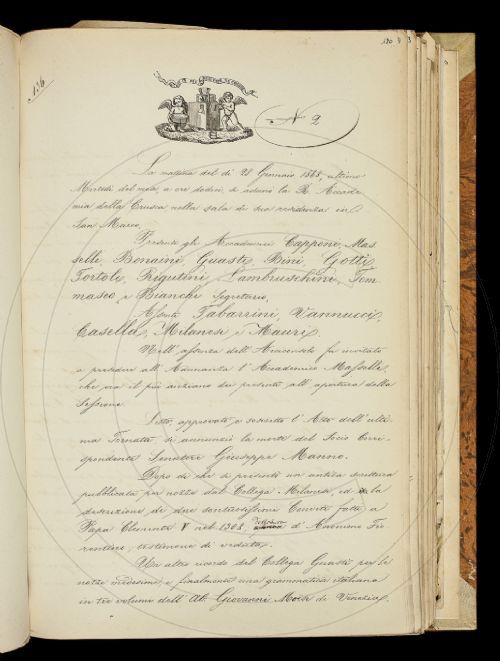 136
120 9 3
N 2
La mattina del dì 28 Gennaio 1868, ultimo
Martedì del mese, a ore dodici, si adunò la R. Accade-
mia della Crusca nella sala di sua residenza in
San Marco,
Presenti gli Accademici Capponi, Mas-
selli, Bonaini, Guasti, Bini, Gotti,
Tortoli, Rigutini, Lambruschini, Tom-
maseo, e Bianchi Segretario,
Assenti Tabarrini, Vannucci,
Casella, Milanesi e Mauri.
Nell' assenza dell' Arciconsolo fu invitato
a presedere all' Adunanza l' Accademico Masselli,
che era il più anziano dei presenti all' apertura della
Sessione.
Letto, approvato e soscritto l' Atto dell' ulti-
ma Tornata, si annunziò la morte del Socio Corri-
spondente Senatore Giuseppe Manno.
Dopo di che si presentò un antica scrittura
pubblicata per nozze dal Collega Milanesi, ed è la
descrizione di due sontuosissimi Conviti fatti a
Papa Clemente V nel 1308, d' Anonimo Fio-
rentino, testimone di veduta.
Un altro ricordo del Collega Guasti per le
nozze medesime, e finalmente una grammatica italiana
in tre volumi dell' Ab. Giovanni Moise di Venezia.